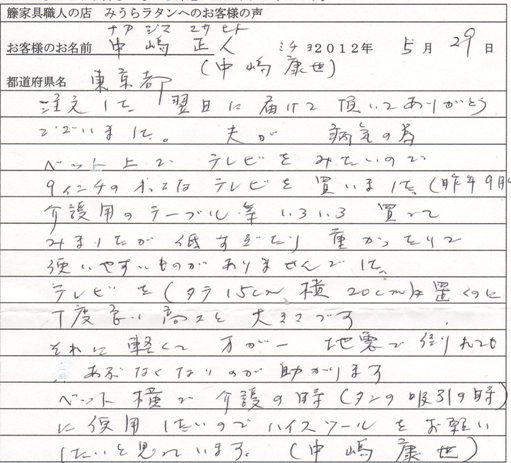 籐家具職人の店 みうらラタンへのお客様の声
ナカジマ マサヒト
お客様のお名前 中嶋 正人 ミチヨ 2012年 5月 29日
(中嶋 康世)
都道府県名 東京都
注文した 翌日に届けて頂いてありがとう
ございました。 夫が 病気の為
ベット上で テレビをみたいので
9インチの テレビを買いました(昨年9月)
介護用のテーブル等いろいろ 買って
みましたが 低すぎたり 重かったりで
使いやすいものがありませんでした。
テレビを(タテ15cm 横20cm)を置くのに
丁度良い高さと大きさです
それに軽くて 万が一 地震で倒れても
あぶなくないのが助かります
ベット横で 介護の時(タンの吸引の時)
に使用したいのでハイスツールをお願い
したいと思っています。 (中嶋 康世)